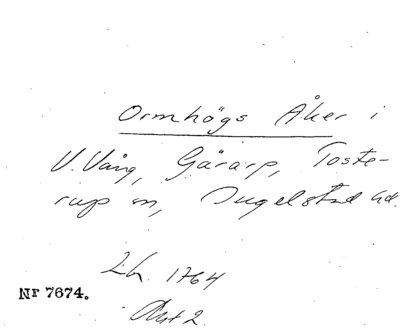 Ormhögs Åker i
V. Vång, Gärarp, Toste-
rup sn, Ingelstad hd.
Lh. 1764
Akt 2.
Nr 7674.